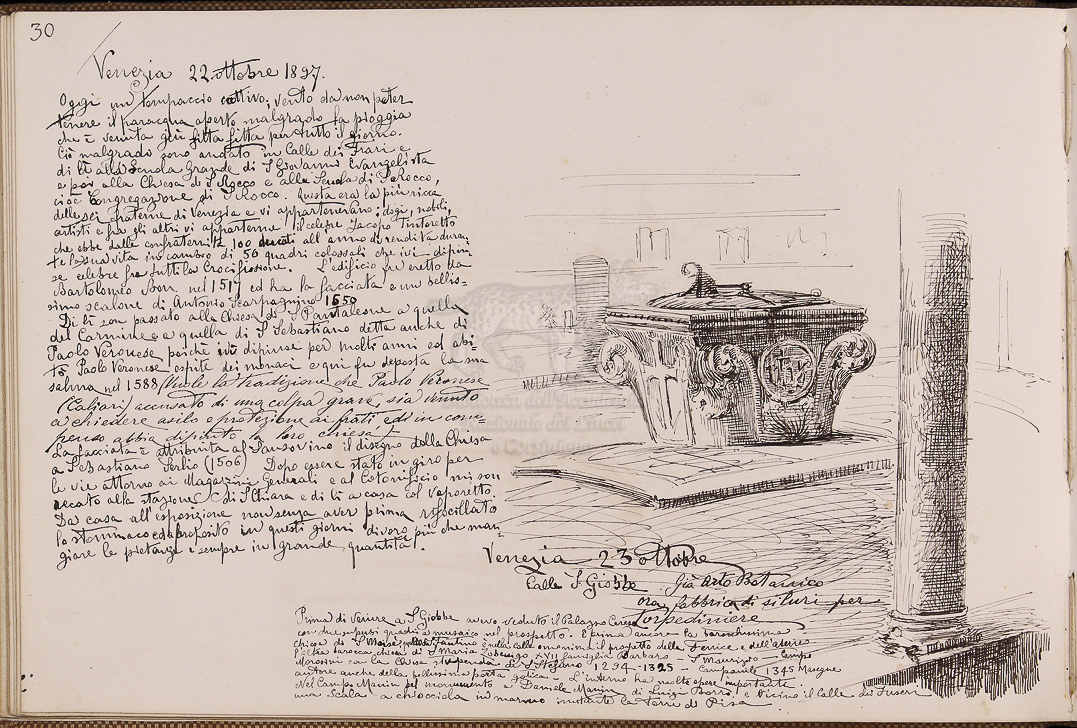 30
Venezia 22 ottobre 1897.
Oggi un tempaccio cattivo, vento da non poter
tenere il paracqua aperto malgrado la pioggia
che è venuta giù fitta fitta per tutto il giorno.
Ciò malgrado sono andato in Calle dei Frari e
di lì alla Scuola Grande di S Giovanni Evangelista
e poi alla Chiesa di S Rocco e alla Scuola di S Rocco,
cioè Congregazione di S Rocco. Questa era la più ricca
delle sei fraterne di Venezia e vi appartenevano: dogi, nobili,
artisti e fra gli altri vi appartenne il celebre Jacopo Tintoretto
che ebbe dalla confraternita 100 ducati all'anno di rendita duran-
te la sua vita in cambio di 56 quadri colossali che ivi dipin-
se celebre fra tutti la Crocifissione. L'edificio fu eretto da
Bartolomeo Bon nel 1517 ed ha la facciata e un bellis-
simo scalone di Antonio Scarpagnino 1550
Di lì son passato alla Chiesa di S Pantaleone a quella
del Carmine e a quella di S Sebastiano detta anche di
Paolo Veronese poichè ivi dipinse per molti anni ed abi-
tò Paolo Veronese ospite dei monaci e qui fu deposta la sua
salma nel 1588 (Vuole la tradizione che Paolo Veronese
(Caliari) accusato di una colpa grave sia venuto
a chiedere asilo e protezione ai frati ed in com-
penso abbia dipinto la loro chiesa
La facciata è attribuita al Sansovino il disegno della Chiesa
a Sebastiano Serlio (1506) Dopo essere stato in giro per
le vie attorno ai Magazzini Generali e al Cotonificio mi son
recato alla stazione di S Chiara e di lì a casa col vaporetto.
Da casa all'esposizione non senza aver prima rifocillato
lo stommaco ed a proposito in questi giorni divoro più che man-
giare le pietanze e sempre in grande quantità.
Venezia 23 ottobre
Calle S. Giobbe Già Orto Botanico
ora fabbrica di siluri per
Torpediniere
Prima di venire a S Giobbe avevo veduto il Palazzo
con due quadri a mosaico nel prospetto. E prima ancora la barocchissima
chiesa di S Moisè, Fantino e nella calle omonima il prospetto della Fenice e dell'ateneo
l'altra barocca chiesa di S Maria Zobenigo XVII famiglia Barbaro - S Maurizio - Campo
Morosini con la Chiesa stupenda di S Stefano 1294-1325 - Campanile 1345 Masegne
autore anche della bellissima porta gotica - L'interno ha molte opere importante.
Nel Campo Manin pel monumento a Daniele Manin di Luigi Borro e vicino il Calle dei Fuseri
una Scala a chiocciola in marmo imitante la Torre di Pisa